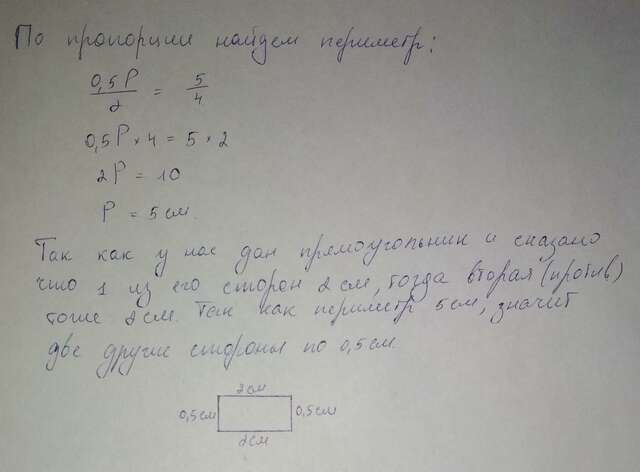 По пропорции найдем периметр:
0,5P/2 = 5/4
0,5P × 4 = 5 × 2
2P = 10
P = 5 см.
Так как у нас дан прямоугольник и сказано
что 1 из его сторон 2 см, тогда вторая (против)
тоже 2 см. Так как периметр 5 см, значит
две другие стороны по 0,5 см.
2 см
0,5 см 0,5 см
2 см